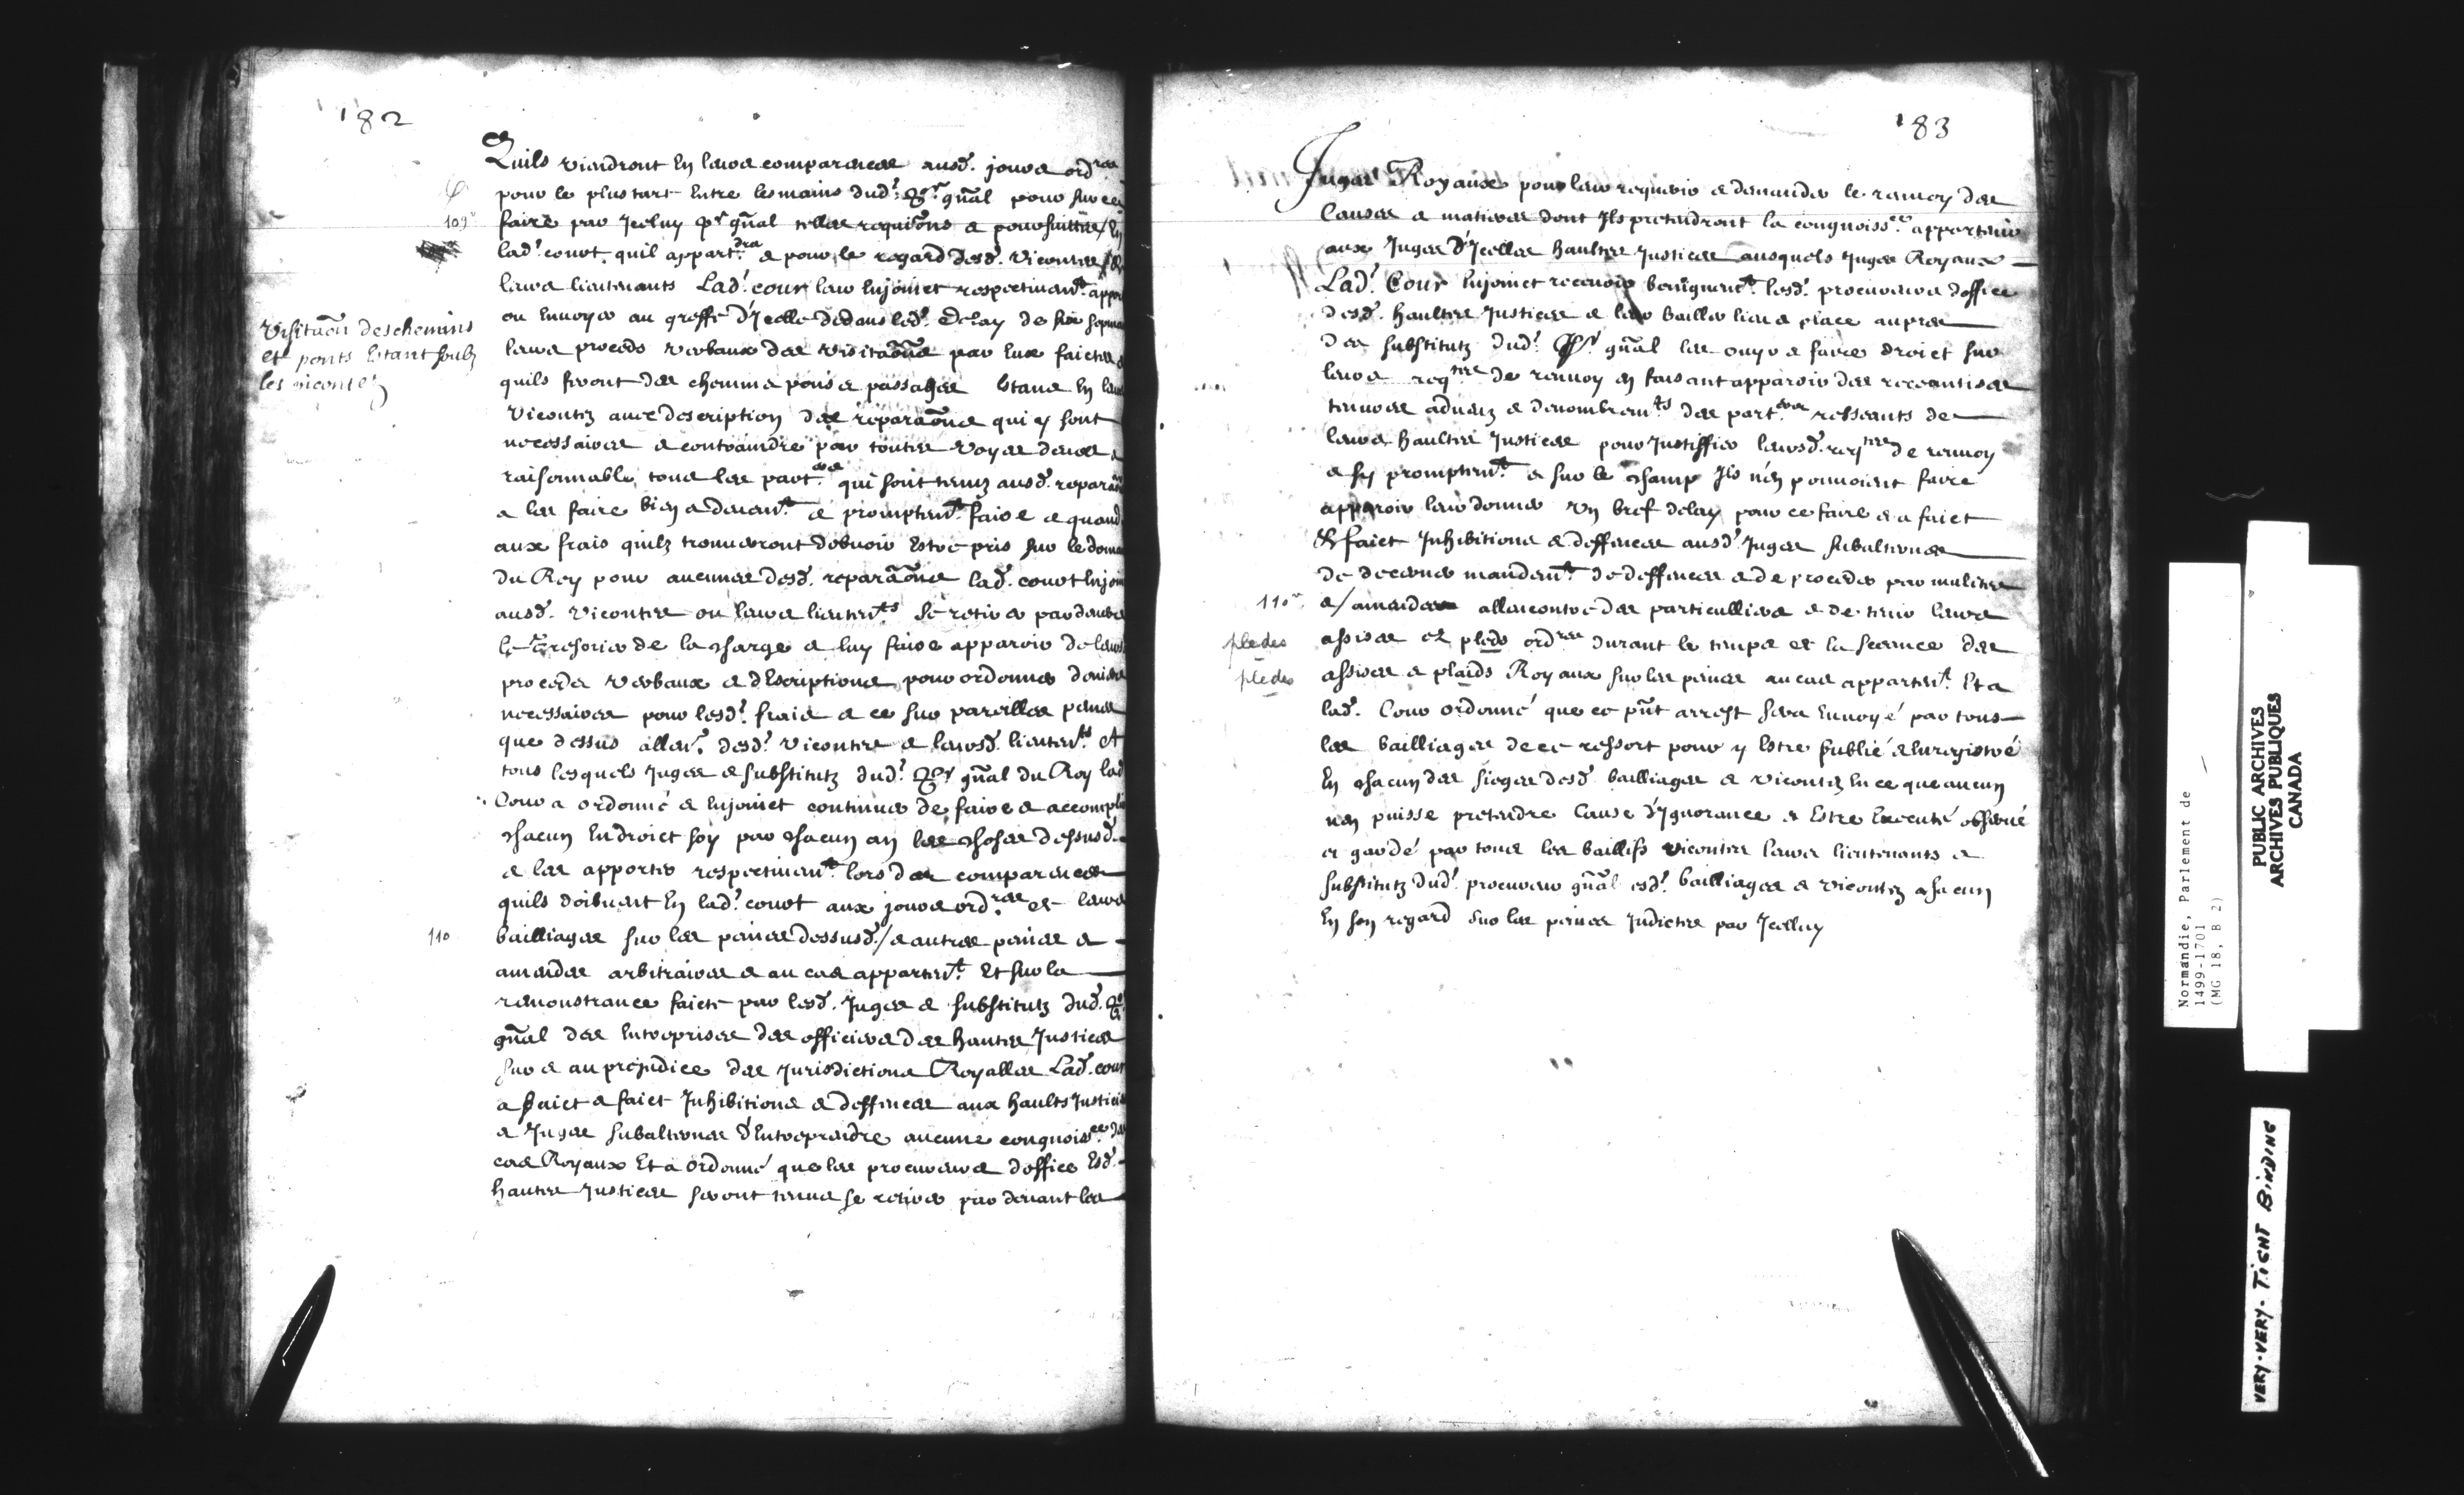 182
Quils viendront En leurs comparences ausd. jours ord.res
pour le plus tart Entre les mains dud. Pr gñal pour sur ce
109v
faire par Icelluy Pr gñal telles requisõns & poursuittes / En
lad. court quil appart.dra & pour le regard desd. vicontes &
leurs lieutenants Lad. cour leur Enjoinct respectivemt. 
ou Envoyer au greffe d'Icelle dedans led. delay de six
leurs proceds verbaux des visitaõns par Eux faictes &
Visitaõn des chemins
et ponts Estant soubz
les vicontez
quils feront des chemins pons & passages Estans En leurs
Vicontez avec description des reparaõns qui y sont
necessaires & contraindre par touttes voyes deues &
raisonnables tous les part.ers qui sont tenuz ausd. reparaõns
a les faire bien & deuemt. & promptemt. faire & quand
aux frais quilz trouveront debvoir Estre pris sur le
du Roy pour aucunes desd. reparaõns lad. court
ausd. Vicontes ou leurs lieutents se retirer par devers
le Tresorier de la charge & luy faire apparoir de leurs
proceds verbaux & descriptions pour ordonner deniers
necessaires pour lesd. frais & ce sur pareilles peines
que dessus desd. vicontes & leursd. lieutents Et
tous lesquels Juges & substitutz dud. Pr gñal du Roy lad
Cour a ordonné & Enjoinct continuer de faire & accomplir
chacun Endroict soy par chacun an les choses dessusd.
& les apporter respectivemt. lors des comparences
quils doibvent En lad. court aux jours ord.res et leurs
110
bailliages sur les peines dessusd. / & autres peines &
amendes arbitraires & au cas appartent. Et sur la
remonstrance faicte par lesd. Juges & substitutz dud. Pr
gñal des Entreprises des officiers des hautes Justices
sur & au prejudice des Jurisdictions Royalles Lad. cour
a faict & faict Inhibitions & deffences aux haults Justiciers
& Juges subalternes d'Entreprendre aucune congnoiss.ce des
cas Royaux Et a ordonné que les procureurs doffice Esd.
hautes Justices seront tenus se retirer par devant les
183
Juges Royaux pour leur requerir & demander le renvoy des
Causes & matieres dont Ils pretendront la congnoiss.ce appartenir
aux Juges d'Icelles haultes Justices ausquels Juges Royaux
Lad. Cour Enjoinct recevoir benignemt. lesd. procureurs doffice
desd. haultes Justices & leur bailler lieu & place aupres
des substitutz dud. Pr. gñal les ouyr & faire droict sur
leurs reqtes de renvoy En faisant apparoir des receantises
tenures adveuz & denombremts des part.ers resseants de
leurs haultes Justices pour Justiffier leursd. reqtes de renvoy
& sy promptemt. & sur le champ Ils n'en pouvoient faire
apparoir leur donner un bref delay pour ce faire & a faict
& faict Inhibitions & deffences ausd. Juges subalternes
de decerner mandemt. de deffences & de proceder par mulctes
110v
& / amendes allencontre des particulliers & de tenir leurs
pledes
assises et pleds ord.res durant le temps et la seance des
pledes
assises & plaids Royaux sur les peines au cas appartent. Et a
lad. Cour ordonné que ce pñt arrest sera Envoyé par tous
les bailliages de ce ressort pour y Estre publié & Enregistré
En chacun des sieges desd. bailliages & vicontez En ce que aucun
n'en puisse pretendre Cause d'Ignorance & Estre Executé observé
et gardé par tous les baillifs vicontes leurs lieutenants &
substitutz dud. procureur gñal esd. bailliages & vicontez chacun
En son regard sur les peines Indictes par Icelluy
Normandie, Parlement de
1499-1701
(MG 18, B 2)
PUBLIC ARCHIVES
ARCHIVES PUBLIQUES
CANADA
VERY-VERY-TIGHT BINDING